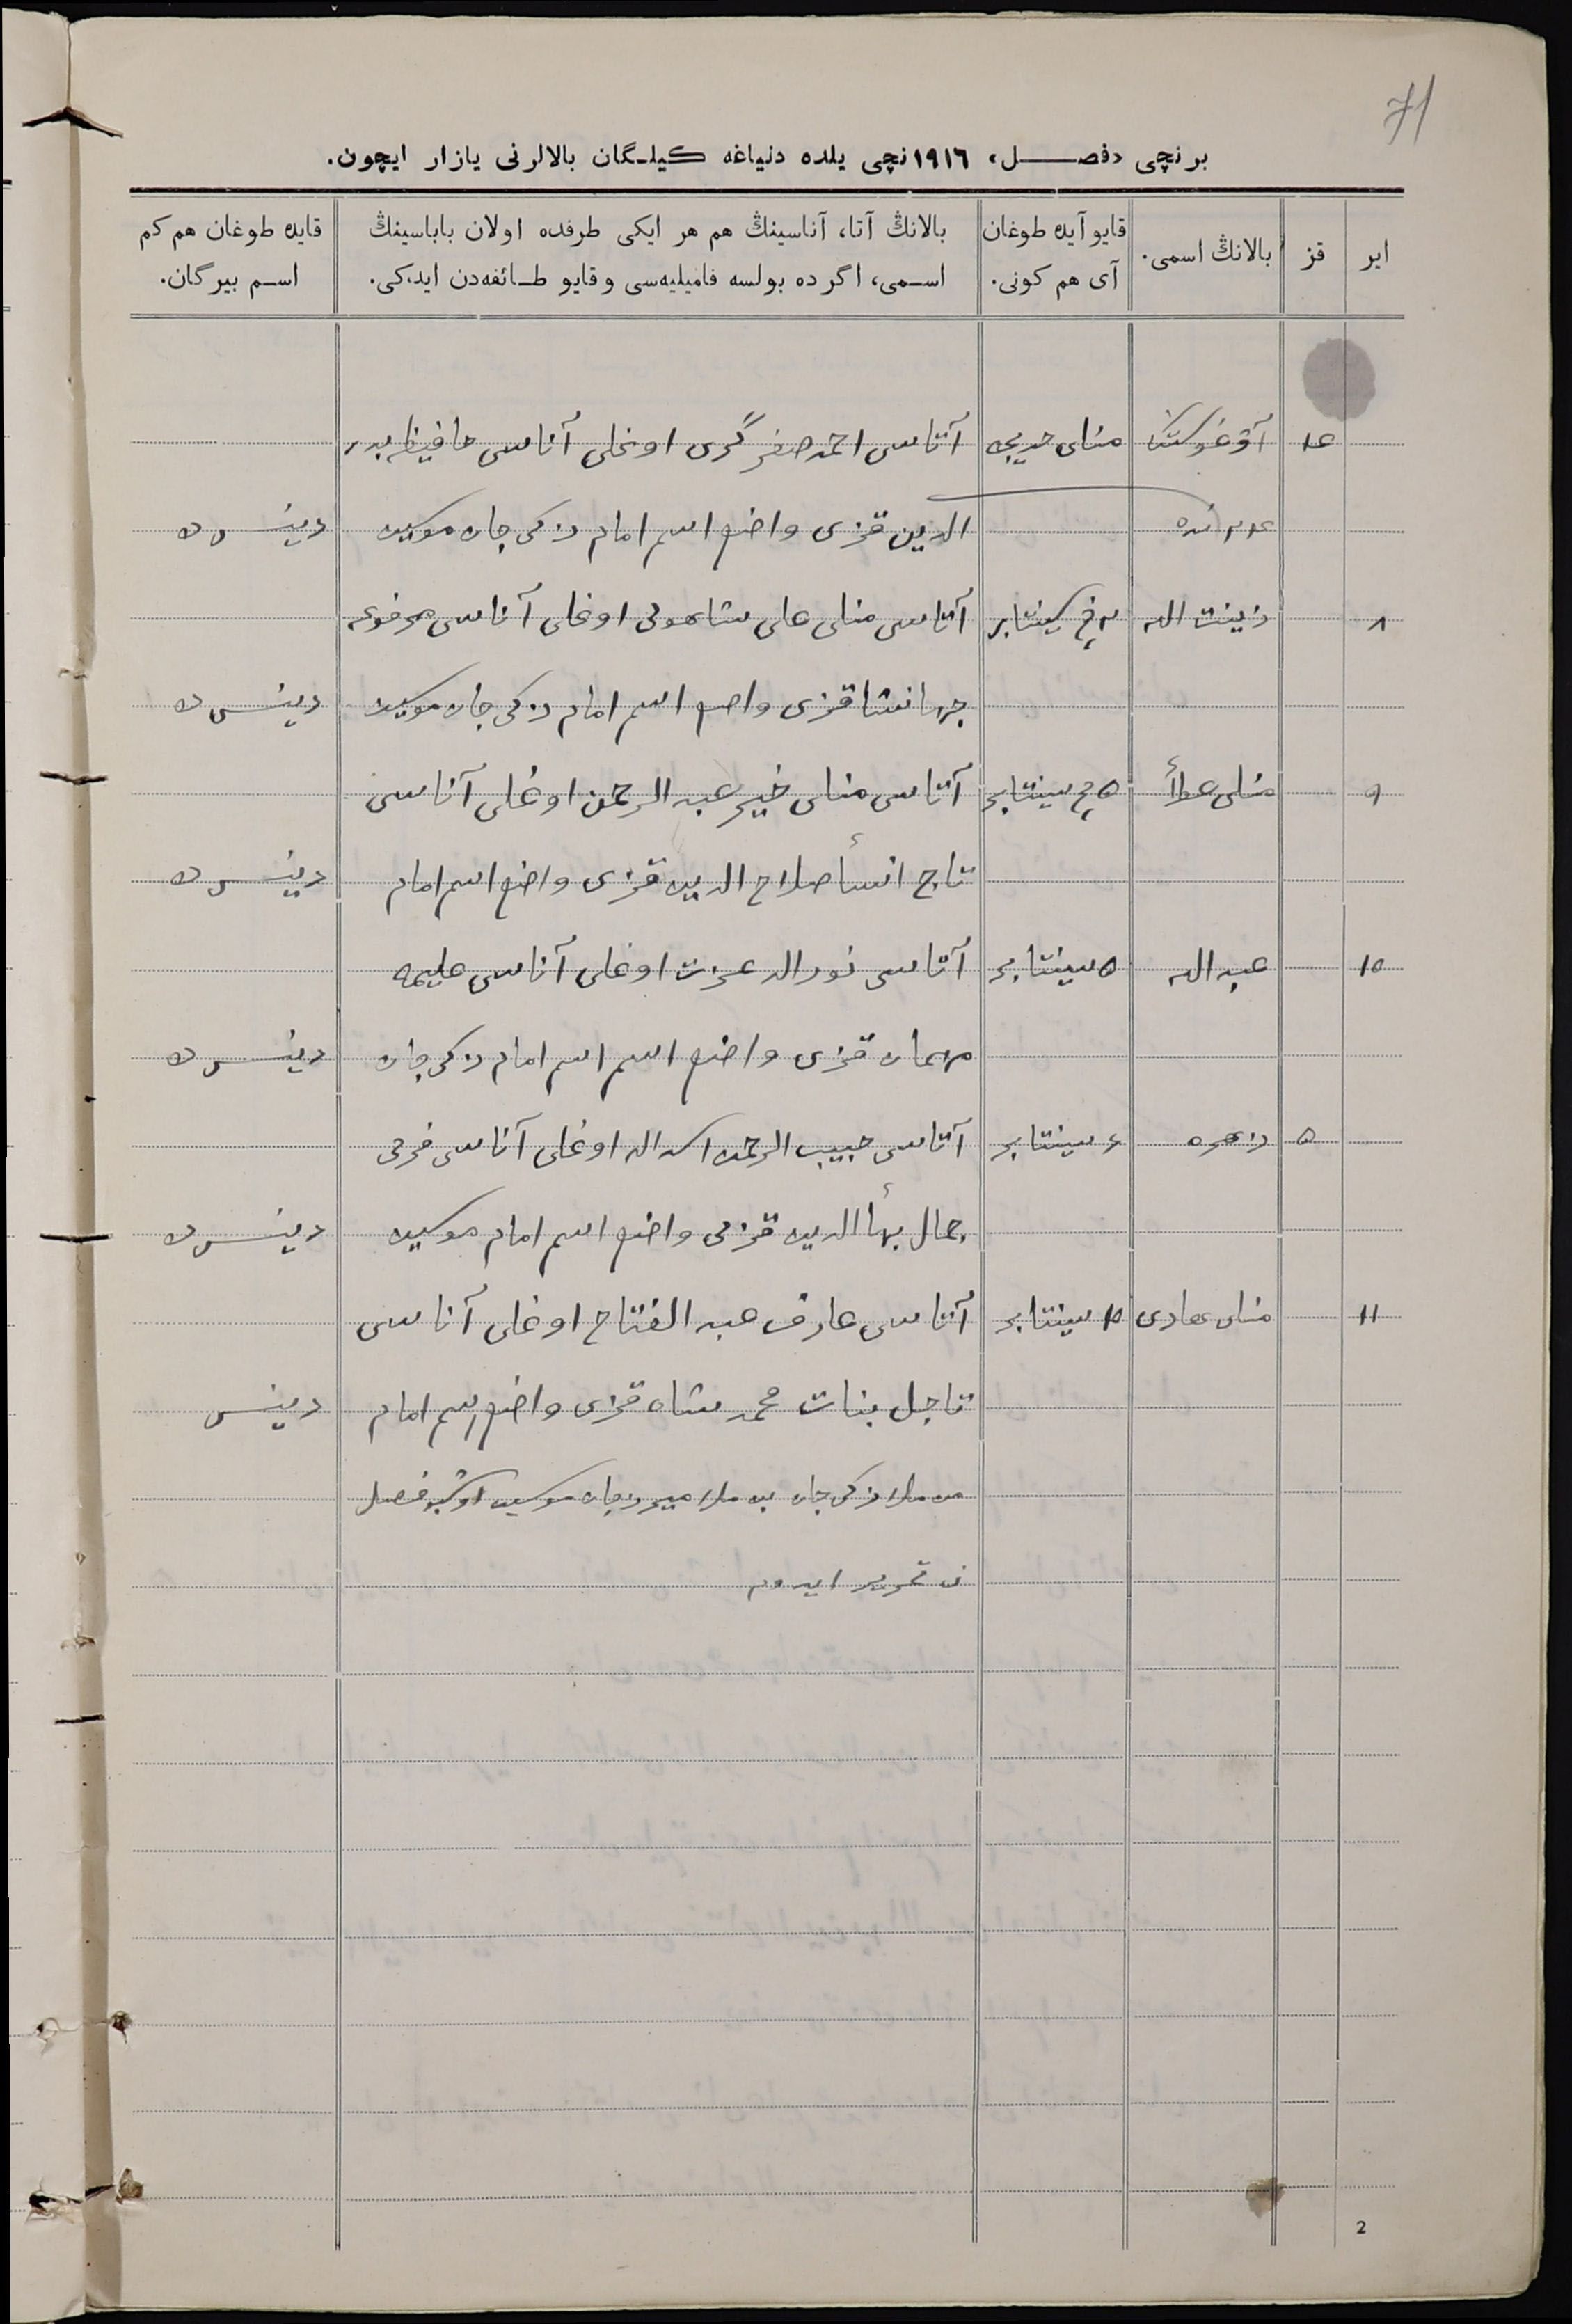 71
برنچی «فصل» ١٩١٦نچی یلده دنیاغه كیلگان بالالرنی یازار ایچون.
ایر
قز
بالانڭ اسمی.
قایو آیده طوغان آی هم كونی.
بالانڭ آتا، آناسینڭ هم هر ایكی طرفده اولان باباسینڭ اسمی، اگرده بولسه فامیلیه‌سی و قایو طائفه‌دن ایدكی.
قایده طوغان هم كم اسم بیرگان.
آوغوستڭ آتاسی احمد صفر گری اوغلی آناسی حافیظه بدر
الدین قزی واضع اسم امام ذكی جان موسین
٨ زینت الله ٣ نچی سینتابر آتاسی منلی علی شاهولی اوغلی آناسی مرفوعه
جهانشا قزی واضع اسم امام ذكی جان موسین
٩ منلی عطأ ٥ نچی سینتابر آتاسی منلی خیر عبد الرحمن اوغلی آناسی
تاج انسأ صلاح الدین قزی واضع اسم امام
١٥ عبد الله ٥ سینتابر آتاسی نورالله عزت اوغلی آناسی علیمه
مهمان قزی واضع اسم اسم امام ذكی جان
٥ زهره ٦ سینتابر آتاسی حبیب الرحمن اسد الله اوغلی آناسی فرحی
جمال بهأ الدین قزی واضع اسم امام موسین
١١ منلی هادی ١٥ سینتابر آتاسی عارف عبد الفتاح اوغلی آناسی
تاجل بنات محمد شاه قزی واضع اسم امام
من ملا ذكی جان بن ملا میرزجان موسین اوشبو فصل
نی تحریر ایدوم
2